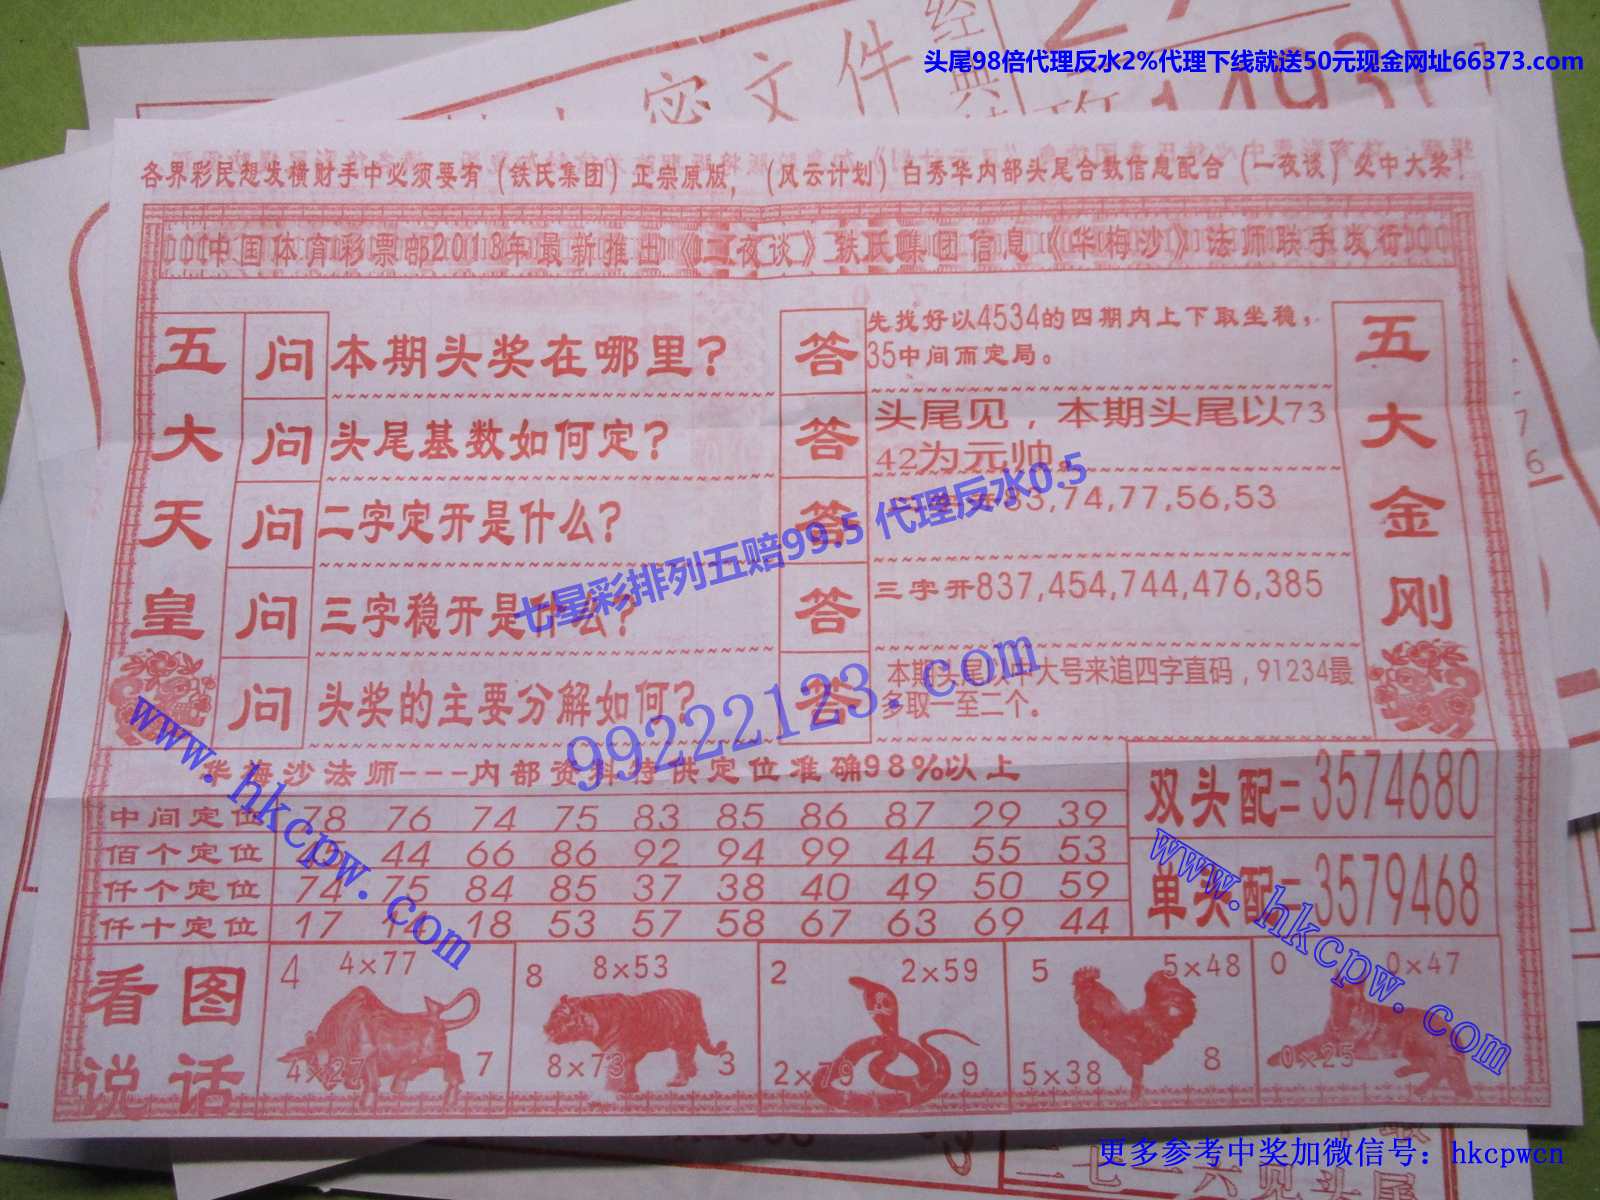 头尾98倍代理反水2%代理下线就送50元现金网址66373.com
密文件
各界彩民想发横财手中必须要有(铁氏集团)正宗原版,(风云计划)白秀华内部头尾合数信息配合(一夜谈)必中大奖!
中国体育彩票部2013年最新推出《二夜谈》铁氏集团信息《华梅沙》法师联手发行
五大天皇
问 本期头奖在哪里?
答 先找好以4534的四期内上下取坐稳,
35中间而定局。
问 头尾基数如何定?
答 头尾见,本期头尾以73
42为元帅。
问 二字定开是什么?
答 83,74,77,56,53
问 三字稳开是什么?
答 三字开837,454,744,476,385
问 头奖的主要分解如何?
答 本期头尾以中大号来追四字直码,91234最
多取一至二个.
五大金刚
七星彩排列五赔99.5 代理反水0.5
99222123.com
www.hkcpw.com
www.hkcpw.com
华梅沙法师---内部资料特供定位准确98%以上
中间定位 78 76 74 75 83 85 86 87 29 39
佰个定位 44 66 86 92 94 99 44 55 53
仟个定位 74 75 84 85 37 38 40 49 50 59
仟十定位 17 14 18 53 57 58 67 63 69 44
双头配=3574680
单头配=3579468
看图说话
4 4×77
4×27 7
8 8×53
8×73 3
2 2×59
2×79 9
5 5×48
5×38 8
0 0×47
0×25
更多参考中奖加微信号:hkcpwcn
二七一六见头尾